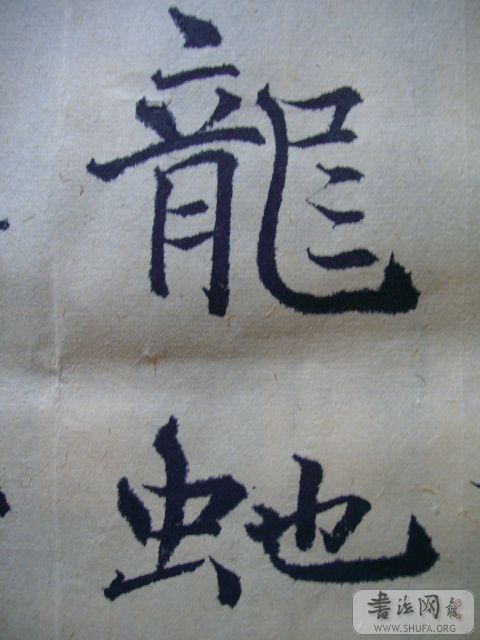 龍
虵
書法网
WWW.SHUFA.ORG